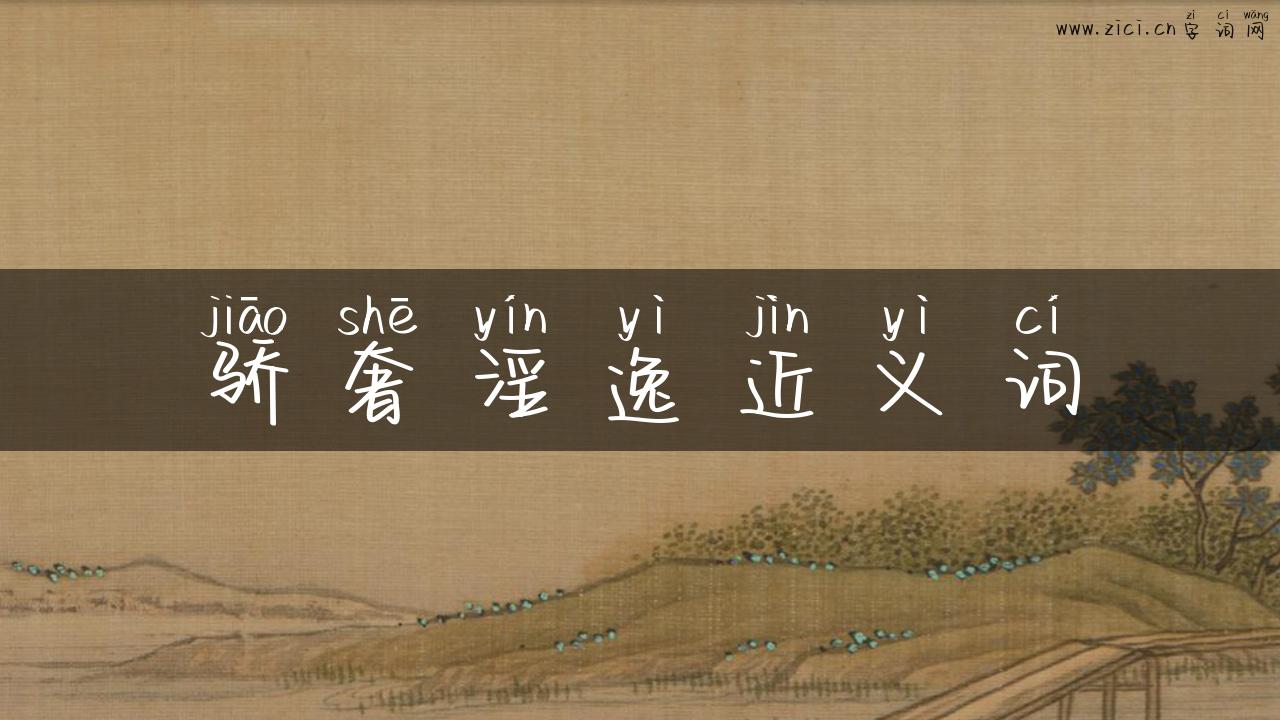 zì cí wǎng
www.zici.cn字词网
jiāo shē yín yì jìn yì cí
骄奢淫逸近义词